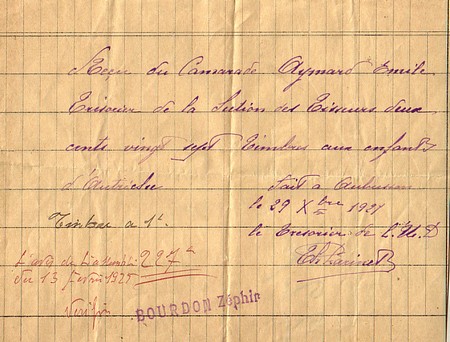 Reçu du Camarade Aymard Emile
Trisorier de la Section des Tisseurs deux
cents vingt sept timbres aux enfants
d'Autriche
fait a Aubusson
le 29 Xbre 1921
Timbre a 1f.
le Tresorier de l'U. D
227f
du 13 février 1925
Vérifié
BOURDON Zéphir